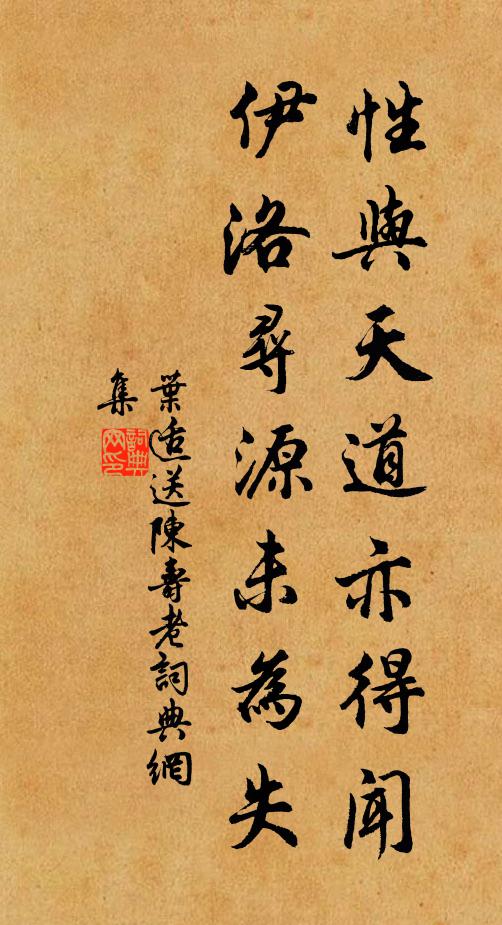 性與天道亦得聞
伊洛尋源未為失
葉適送陳壽老詞典網
集
詞典
网印